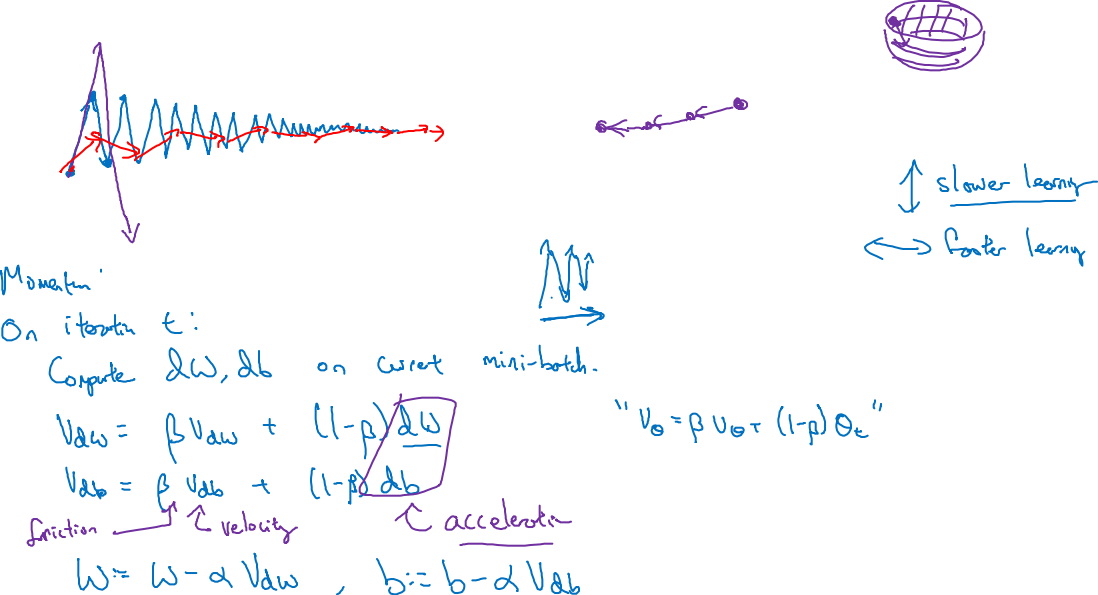 slower learning
faster learning
Momentum:
On iteration t:
Compute dW, db on current mini-batch.
V_dW = β V_dW + (1-β) dW
"V_θ = β V_θ + (1-β) θ_t"
V_db = β V_db + (1-β) db
friction velocity acceleration
W := W - α V_dW , b := b - α V_db